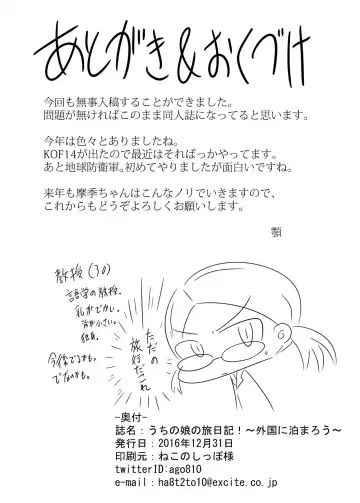 あとがき＆おくづけ
今回も無事入稿することができました。
問題が無ければこのまま同人誌になってると思います。
今年は色々とありましたね。
KOF14が出たので最近はそればっかやってます。
あと地球防衛軍。初めてやりましたが面白いですね。
来年も摩季ちゃんはこんなノリでいきますので、
これからもどうぞよろしくお願いします。
顎
教授（30）
語学の教授。
乳がでかし。
背が小さい。
独身。
今後でるかも。
でないかも。
ただの
旅行だこれ
-奥付-
誌名：うちの娘の旅日記！～外国に泊まろう～
発行日：2016年12月31日
印刷元：ねこのしっぽ様
twitterID:ago810
e-mail：ha8t2to10@excite.co.jp